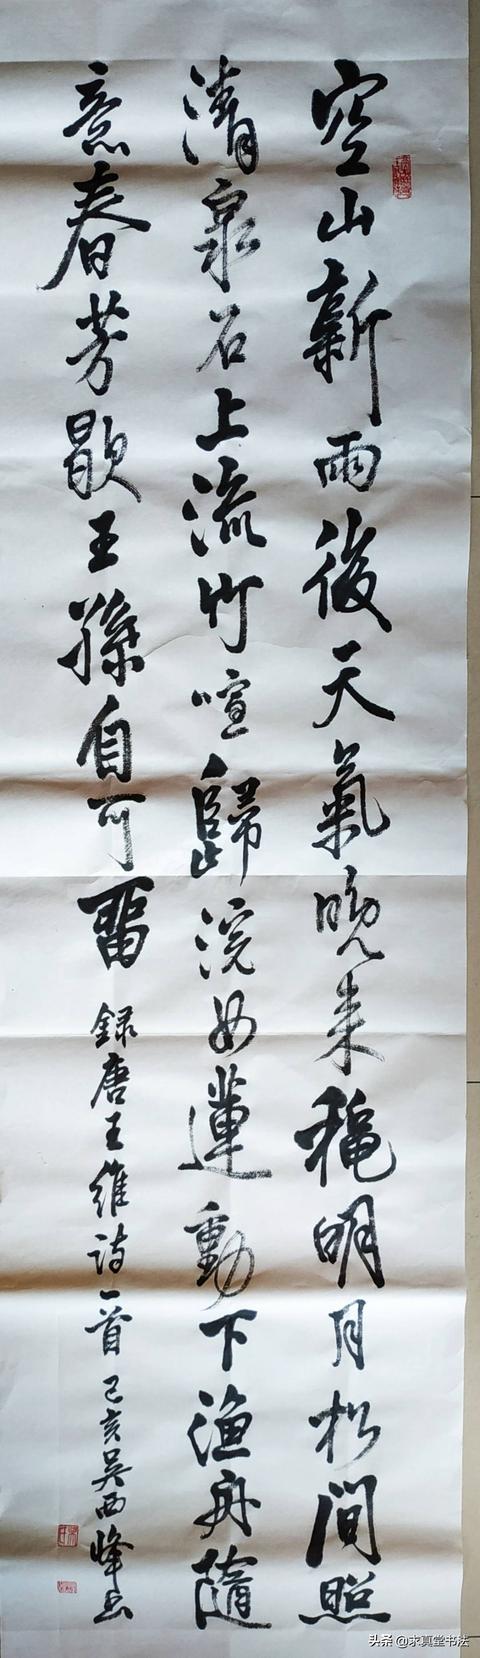 空山新雨後天氣晚来穐明月松間照
清泉石上流竹喧歸浣女蓮動下渔舟隨
意春芳歇王孫自可畱 録唐王維詩一首 己亥吴西峰书
头条 @求真堂书法